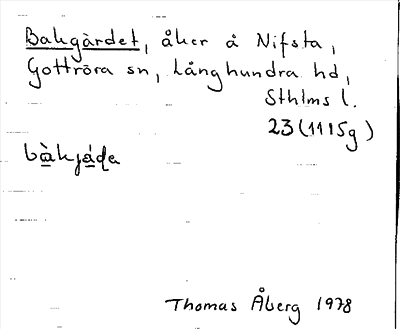 Bakgärdet, åker å Nifsta,
Gottröra sn, Långhundra hd,
Sthlms l.
23 (11 I 5g)
bàkjáɖa
Thomas Åberg 1978